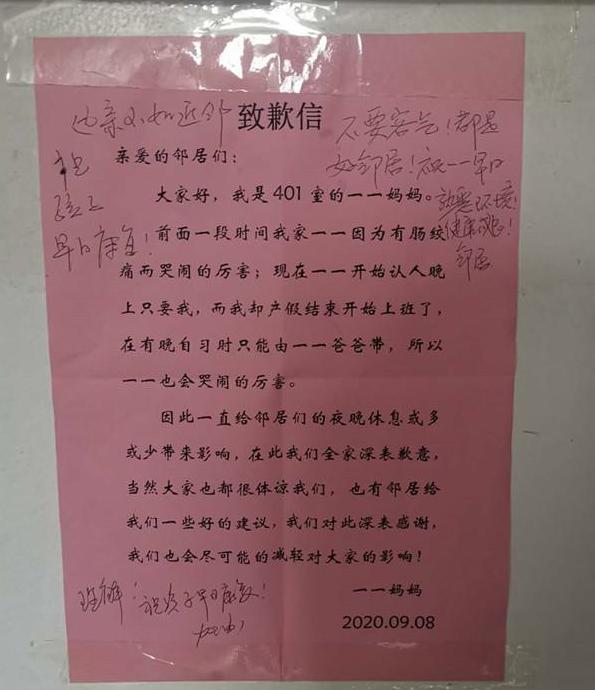 远亲不如近邻
致歉信
不要客气！都是
好邻居！祝一一早日
熟悉环境！
健康成长！
邻居
祝
宝宝
早日康复！
亲爱的邻居们：
大家好，我是401室的一一妈妈。
前面一段时间我家一一因为有肠绞
痛而哭闹的厉害；现在一一开始认人晚
上只要我，而我却产假结束开始上班了，
在有晚自习时只能由一一爸爸带，所以
一一也会哭闹的厉害。
因此一直给邻居们的夜晚休息或多
或少带来影响，在此我们全家深表歉意，
当然大家也都很体谅我们，也有邻居给
我们一些好的建议，我们对此深表感谢，
我们也会尽可能的减轻对大家的影响！
一一妈妈
2020.09.08
理解！祝孩子早日康复！
加油！